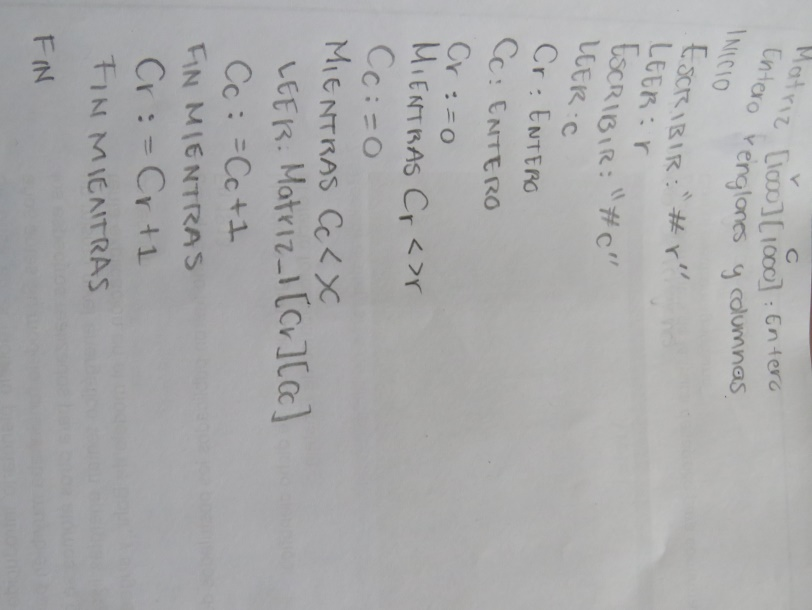 Matriz [1000][1000]: Entero
r c
Entero renglones y columnas
INICIO
ESCRIBIR: "# r"
LEER: r
ESCRIBIR: "#c"
LEER: c
Cr: ENTERO
Cc: ENTERO
Cr:=0
MIENTRAS Cr <>r
Cc:=0
MIENTRAS Cc<X
LEER: Matriz_1[Cr][Cc]
Cc:=Cc+1
FIN MIENTRAS
Cr:=Cr+1
FIN MIENTRAS
FIN